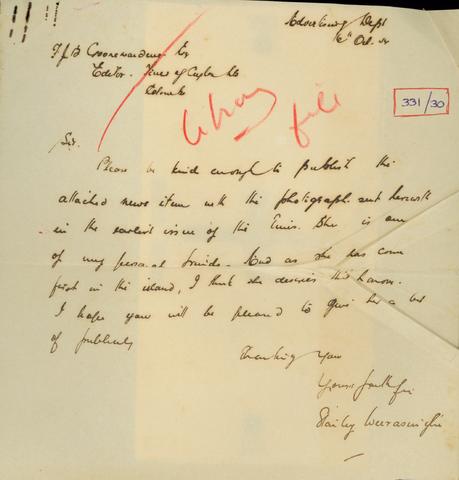 Advertising Dept
6th Oct.
Editor. Times of Ceylon Co
Colombo
331/30
Library file
Sir.
Please be kind enough to publish the
attached news item with the photograph sent herewith
in the earliest issue of the Times. She is one
of my personal friends. And as she has come
first in the island, I think she deserves this honour.
I hope you will be pleased to give her a bit
of publicity
Thanking You
Yours faithfully
Weerasinghe